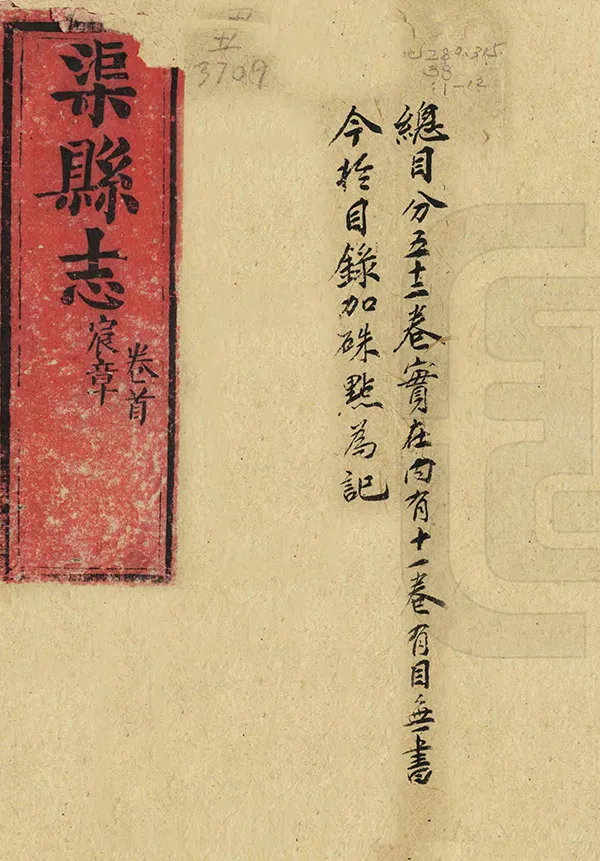 總目分五十二卷實在內有十一卷有目無書
今扵目錄加硃點為記
渠縣志
卷首
宸章
3709
280.315
38
:1-12